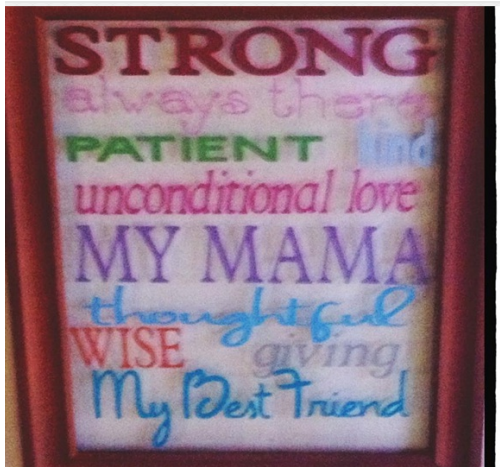 STRONG
always there
PATIENT kind
unconditional love
MY MAMA
thoughtful
WISE giving
My Best Friend